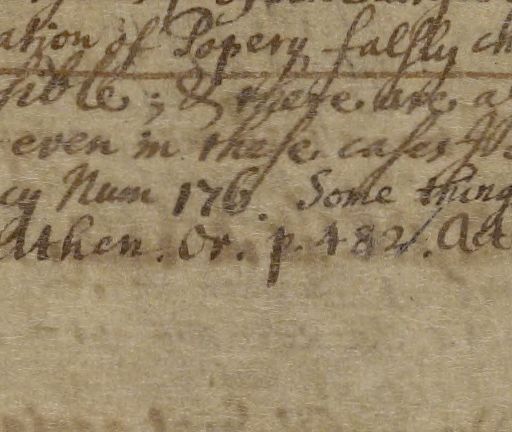 ation of Popery falsly ch
sible; & there are a
even in those cases
cy Num 176. Some thing
Athen. Or. p. 482. Ad